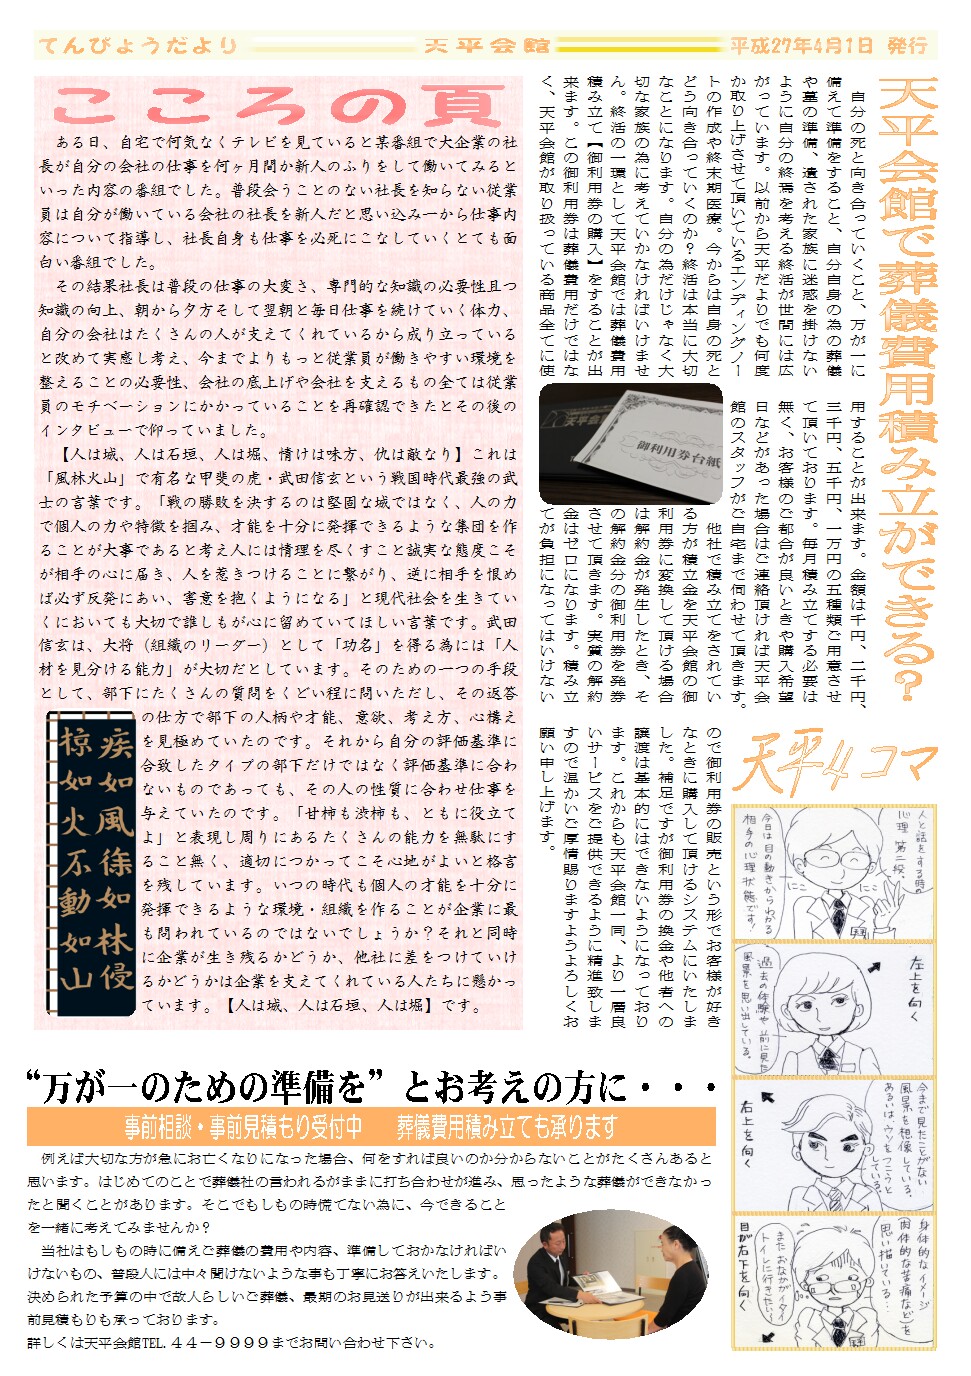 てんぴょうだより
天平会館
平成27年4月1日 発行
こころの頁
ある日、自宅で何気なくテレビを見ていると某番組で大企業の社
長が自分の会社の仕事を何ヶ月間か新人のふりをして働いてみると
いった内容の番組でした。普段会うことのない社長を知らない従業
員は自分が働いている会社の社長を新人だと思い込み一から仕事内
容について指導し、社長自身も仕事を必死にこなしていくとても面
白い番組でした。
その結果社長は普段の仕事の大変さ、専門的な知識の必要性且つ
知識の向上、朝から夕方そして翌朝と毎日仕事を続けていく体力、
自分の会社はたくさんの人が支えてくれているから成り立っている
と改めて実感し考え、今までよりもっと従業員が働きやすい環境を
整えることの必要性、会社の底上げや会社を支えるもの全ては従業
員のモチベーションにかかっていることを再確認できたとその後の
インタビューで仰っていました。
【人は城、人は石垣、人は堀、情けは味方、仇は敵なり】これは
「風林火山」で有名な甲斐の虎・武田信玄という戦国時代最強の武
士の言葉です。「戦の勝敗を決するのは堅固な城ではなく、人の力
で個人の力や特徴を掴み、才能を十分に発揮できるような集団を作
ることが大事であると考え人には情理を尽くすこと誠実な態度こそ
が相手の心に届き、人を惹きつけることに繋がり、逆に相手を恨め
ば必ず反発にあい、害意を抱くようになる」と現代社会を生きてい
くにおいても大切で誰しもが心に留めていてほしい言葉です。武田
信玄は、大将（組織のリーダー）として「功名」を得る為には「人
材を見分ける能力」が大切だとしています。そのための一つの手段
として、部下にたくさんの質問をくどい程に問いただし、その返答
の仕方で部下の人柄や才能、意欲、考え方、心構え
を見極めていたのです。それから自分の評価基準に
合致したタイプの部下だけではなく評価基準に合わ
ないものであっても、その人の性質に合わせ仕事を
与えていたのです。「甘柿も渋柿も、ともに役立て
よ」と表現し周りにあるたくさんの能力を無駄にす
ること無く、適切につかってこそ心地がよいと格言
を残しています。いつの時代も個人の才能を十分に
発揮できるような環境・組織を作ることが企業に最
も問われているのではないでしょうか？それと同時
に企業が生き残るかどうか、他社に差をつけていけ
るかどうかは企業を支えてくれている人たちに懸かっ
ています。【人は城、人は石垣、人は堀】です。
疾如風徐如林侵
掠如火不動如山
天平会館で葬儀費用積み立ができる？
自分の死と向き合っていくこと、万が一に
備えて準備をすること、自分自身の為の葬儀
や墓の準備、遺された家族に迷惑を掛けない
ように自分の終焉を考える終活が世間には広
がっています。以前から天平だよりでも何度
か取り上げさせて頂いているエンディングノー
トの作成や終末期医療。今からは自身の死と
どう向き合っていくのか？終活は本当に大切
なことになります。自分の為だけじゃなく大
切な家族の為に考えていかなければいけませ
ん。終活の一環として天平会館では葬儀費用
積み立て【御利用券の購入】をすることが出
来ます。この御利用券は葬儀費用だけではな
く、天平会館が取り扱っている商品全てに使
用することが出来ます。金額は千円、二千円、
三千円、五千円、一万円の五種類ご用意させ
て頂いております。毎月積み立てする必要は
無く、お客様のご都合が良いときや購入希望
日などがあった場合はご連絡頂ければ天平会
館のスタッフがご自宅まで伺わせて頂きます。
他社で積み立てをされてい
る方が積立金を天平会館の御
利用券に変換して頂ける場合
は解約金が発生したとき、そ
の解約金分の御利用券を発券
させて頂きます。実質の解約
金はゼロになります。積み立
てが負担になってはいけない
ので御利用券の販売という形でお客様が好き
なときに購入して頂けるシステムにいたしま
した。補足ですが御利用券の換金や他者への
譲渡は基本的にはできないようになっており
ます。これからも天平会館一同、より一層良
いサービスをご提供できるように精進致しま
すので温かいご厚情賜りますようよろしくお
願い申し上げます。
御利用券台紙
天平4コマ
人と話をする時の
心理 第二段。
にこ
にこ
今日は目の動きからわかる
相手の心理状態です！
左上を向く
過去の体験や前に見た
風景を思い出している。
右上を向く
今まで見たことがない
風景を想像している。
あるいは、ウソをつこうと
している。
目が右下を向く
身体的なイメージ
(肉体的な苦痛など)を
思い描いている…
またおなかがイタイ
トイレに行きたい!!
“万が一のための準備を”とお考えの方に・・・
事前相談・事前見積もり受付中 葬儀費用積み立ても承ります
例えば大切な方が急にお亡くなりになった場合、何をすれば良いのか分からないことがたくさんあると
思います。はじめてのことで葬儀社の言われるがままに打ち合わせが進み、思ったような葬儀ができなかっ
たと聞くことがあります。そこでもしもの時慌てない為に、今できること
を一緒に考えてみませんか？
当社はもしもの時に備えご葬儀の費用や内容、準備しておかなければい
けないもの、普段人には中々聞けないような事も丁寧にお答えいたします。
決められた予算の中で故人らしいご葬儀、最期のお見送りが出来るよう事
前見積もりも承っております。
詳しくは天平会館TEL.４４－９９９９までお問い合わせ下さい。